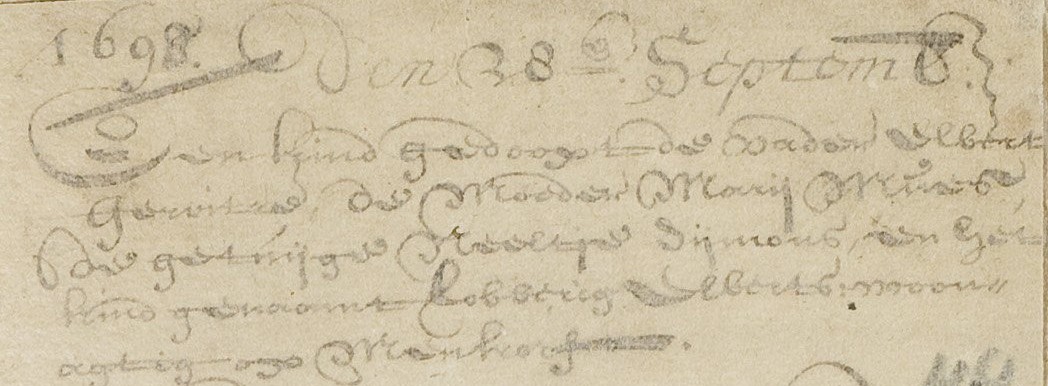 1698. Den 28e. Septemb.
Een kind gedoopt de vader Elbert
Gerritse, de Moeder Marij Mues,
de getuijge Neeltje Dijmons, en het
kind genaamt Lobberig Elberts: woon-
agtig op Menkoch.